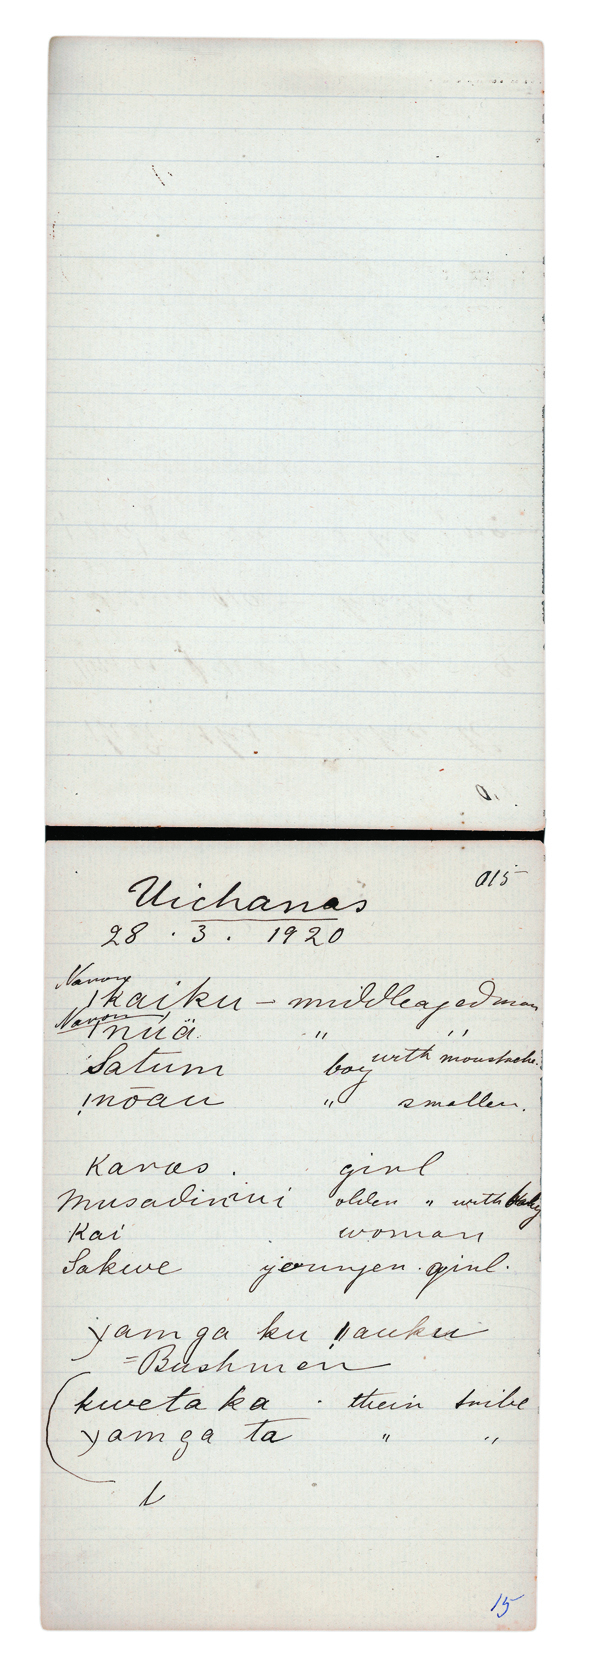 015
Uichanas
28 . 3 . 1920
Naron
!kaiku – middleaged man
Naron
!nuä " "
Satum boy with moustache.
!nōau " smaller.
Karas . girl
Musadirini older " with baby
Kai woman
Sakwe younger girl.
ɣamga ku ǁauku
= Bushmen
kwetaka . their tribe
ɣamga ta " "
15